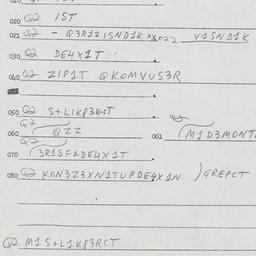 020 Q2 IST
021 Q2 - Q3R1Z1SND1K V1SND1K
030 Q2 DE4X1T
040 Q2 Z1P1T QKOMVUS3R
050 Q2 S+L1KP3RCT
060 Q2 QZZ 061 Q2 M1D3MONT
070 Q2 3R1SFADE4X1T
080 Q2 KON3Z3XN1TUPDE4X1N )GREPCT
Q2 M1S+L1KP3RCT